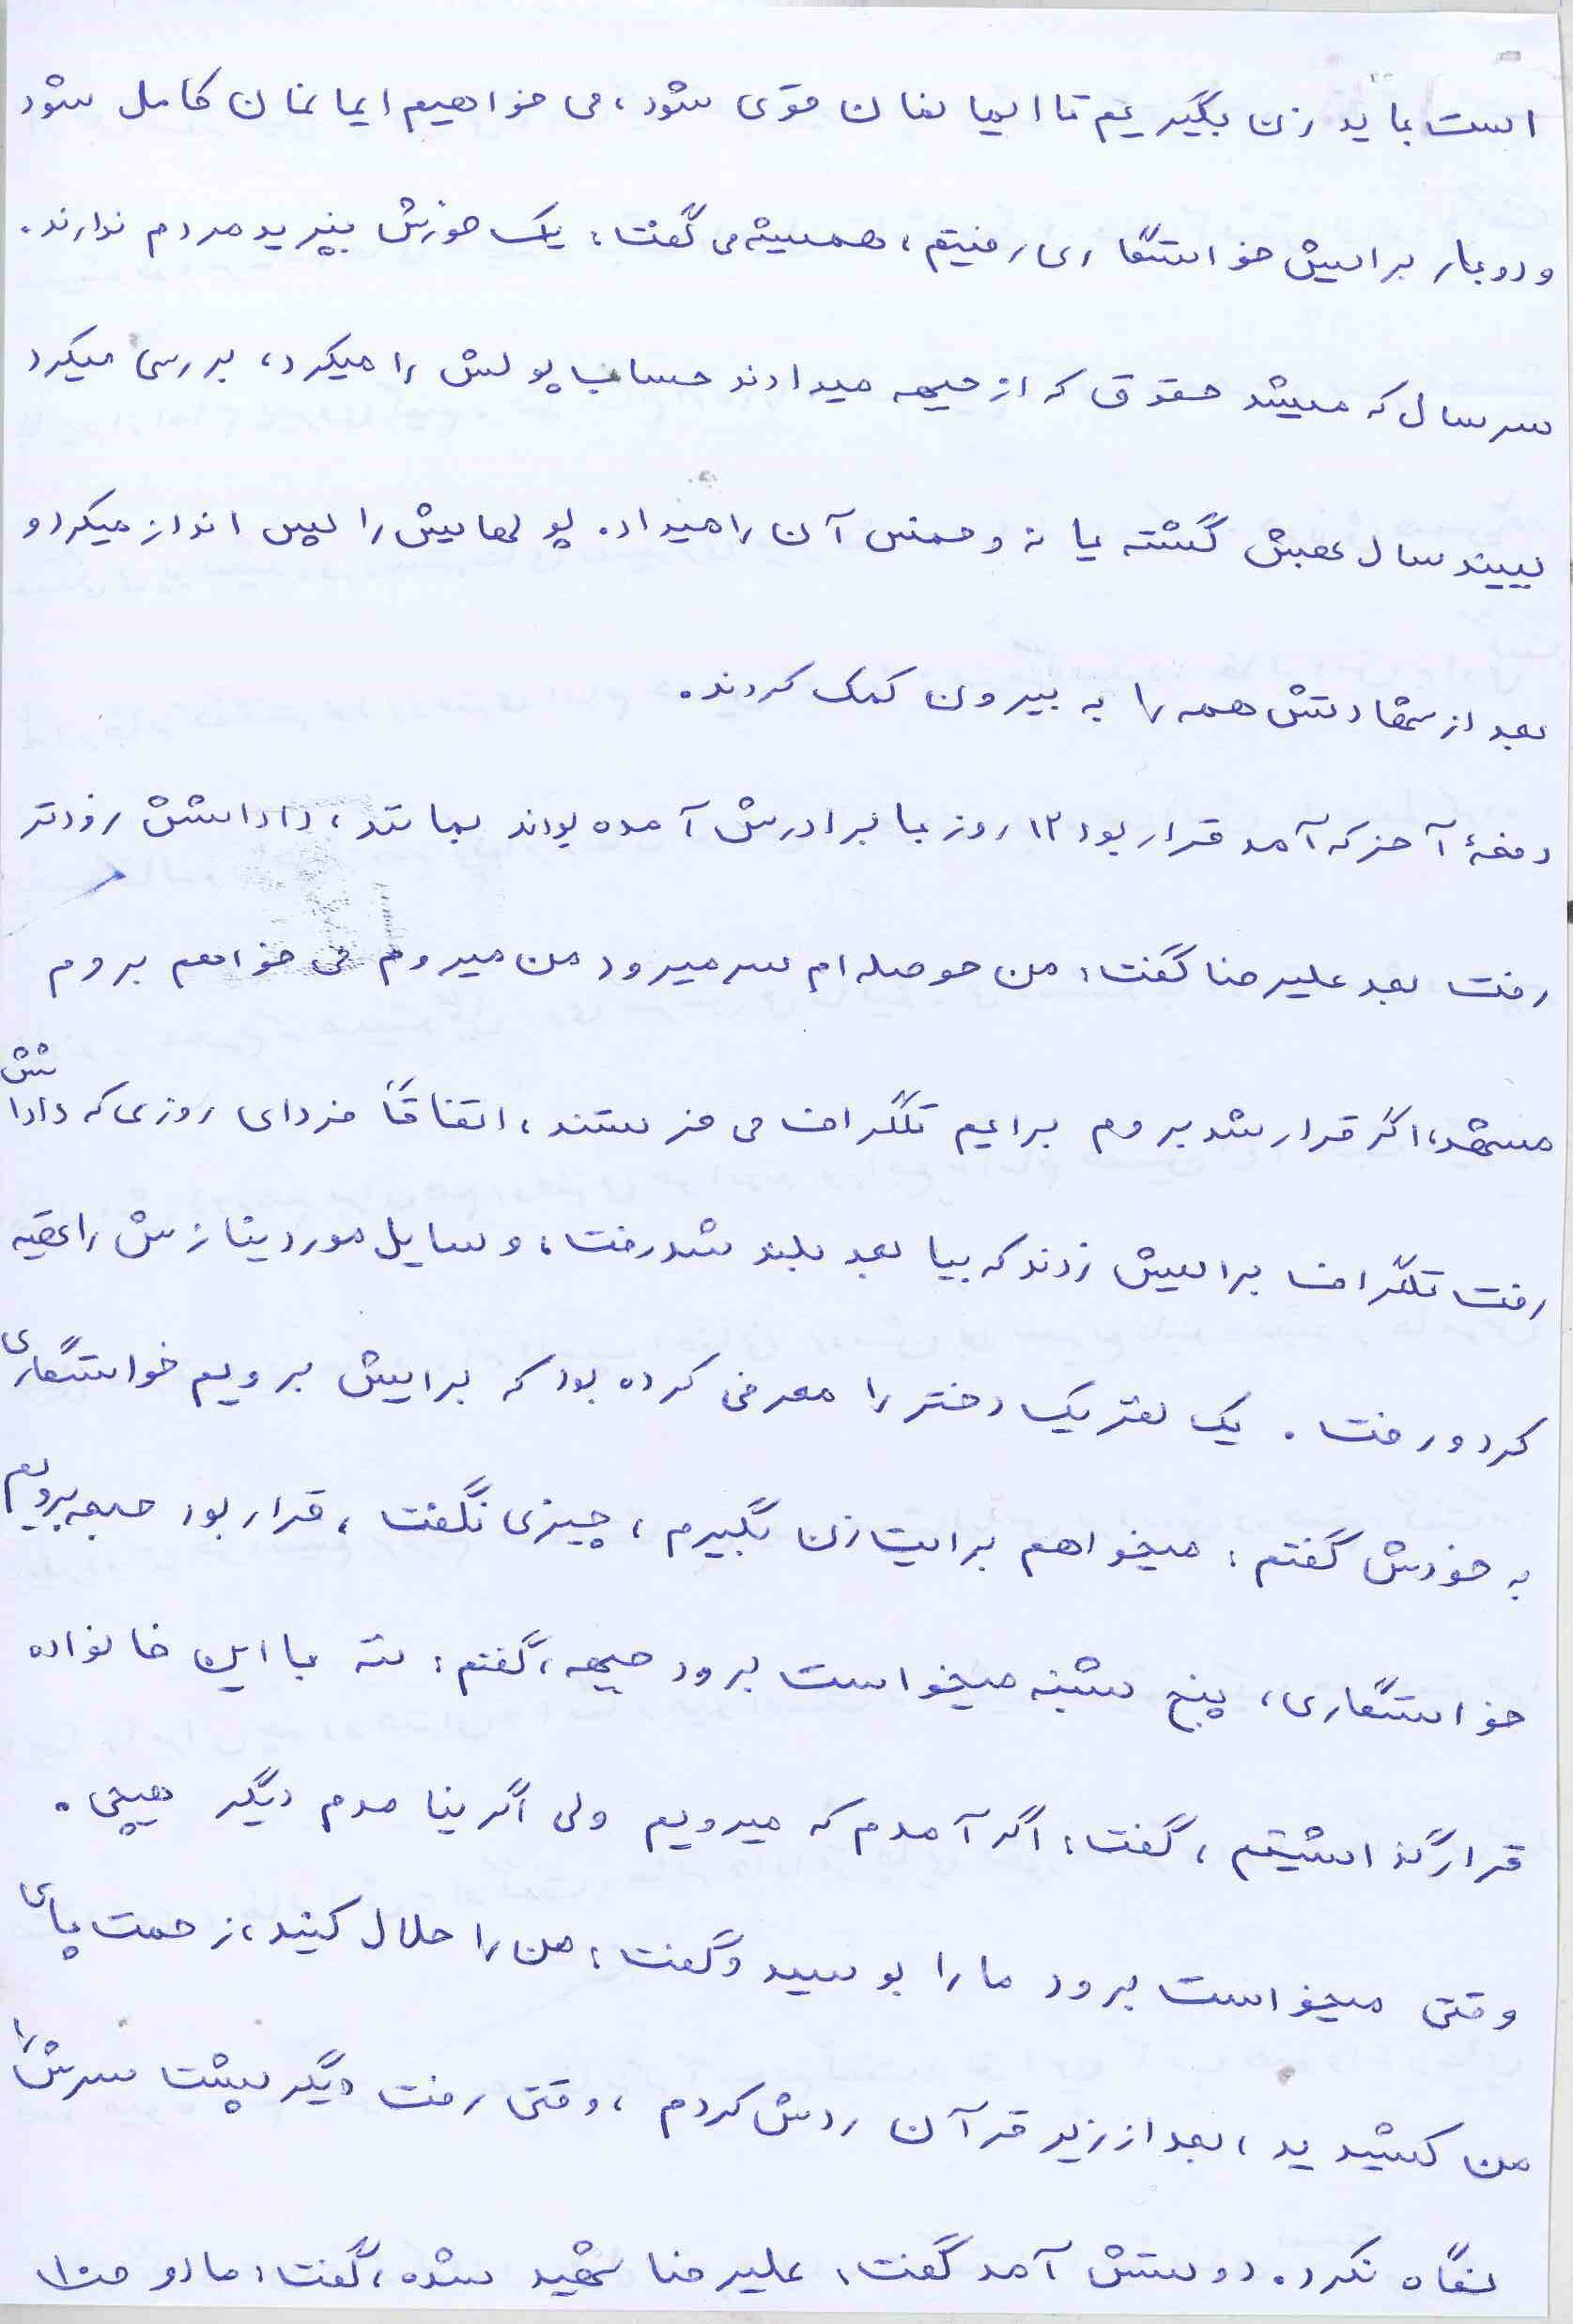 است باید زن بگیریم تا ایمانمان قوی شود، می خواهیم ایمانمان کامل شود
و دو بار برایش خواستگاری رفتیم، همیشه می گفت: یک خورش بپزید مردم ندارند.
سر سال که میشد حقوق که از جبهه میدادند حساب پولش را میکرد، بررسی میکرد
ببیند سال عقبش گشته یا نه و خمس آن را میداد. پولهایش را پس انداز میکرد و
بعد از شهادتش همه را به بیرون کمک کردند.
دفعهٔ آخر که آمد قرار بود ۱۲ روز با برادرش آمده بودند بماند، داداشش زودتر
رفت بعد علیرضا گفت: من حوصله ام سر میرود من میروم می خواهم بروم
مشهد، اگر قرار شد بروم برایم تلگراف می فرستند، اتفاقاً فردای روزی که داداشش
رفت تلگراف برایش زدند که بیا بعد بلند شد رفت، وسایل مورد نیازش را تهیه
کرد و رفت. یک نفر یک دختر را معرفی کرده بود که برایش برویم خواستگاری
به خودش گفتم: میخواهم برایت زن بگیرم، چیزی نگفت، قرار بود جمعه برویم
خواستگاری، پنج شنبه میخواست برود جبهه، گفتم: ننه با این خانواده
قرار گذاشتیم، گفت: اگر آمدم که میرویم ولی اگر نیامدم دیگر هیچی.
وقتی میخواست برود ما را بوسید و گفت: من را حلال کنید، زحمت پای
من کشیدید، بعد از زیر قرآن ردش کردم، وقتی رفت دیگر پشت سرش را
نگاه نکرد. دوستش آمد گفت: علیرضا شهید شده، گفت: ما دو